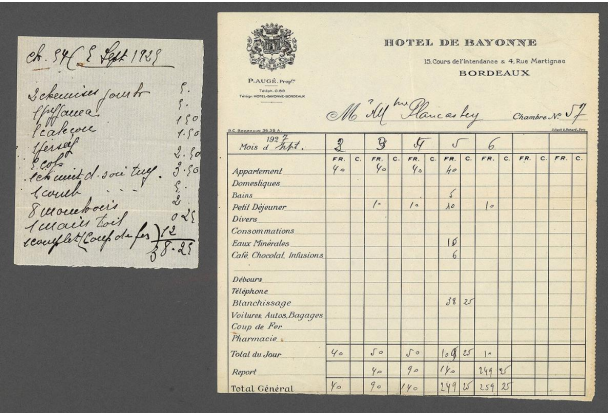 ch. 57 / 5 Sept 1925
2 chemises jour 5.
1 pyjama 5.
1 caleçon 1.50
1.50
2.50
3.50
1 comb 5.
8 mouchoirs 2
0.25
1 complet (Coup de fer) 12
38.25
HOTEL DE BAYONNE
15, Cours de l'Intendance & 4, Rue Martignac
BORDEAUX
P. AUGÉ, Propre
Télégr: HOTEL-BAYONNE-BORDEAUX
Mr & Mme Plancastey Chambre No 57
Mois d' Sept. 1927 2 3 4 5 6
FR. C. FR. C. FR. C. FR. C. FR. C. FR. C. FR. C.
Appartement 40 40 40 40
Domestiques
Bains 6
Petit Déjeuner 10 10 10 10
Divers
Consommations
Eaux Minérales
Café, Chocolat, Infusions 6
Débours
Téléphone
Blanchissage 38 25
Voitures, Autos, Bagages
Coup de Fer
Pharmacie
Total du Jour 40 50 50 109 25 10
Report 40 90 140 249 25
Total Général 40 90 140 249 25 259 25